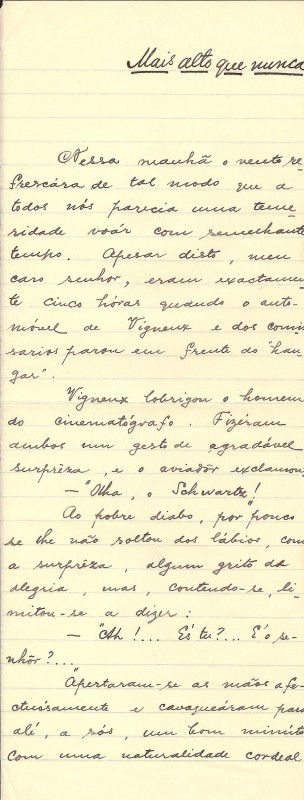 Mais alto que nunca
Nessa manhã o vento re-
frescára de tal modo que a
todos nós parecia uma teme-
ridade voár com semelhante
tempo. Apesar disto, meu
caro senhor, eram exactamen-
te cinco hóras quando o auto-
móvel de Vigneux e dos comis-
sarios parou em frente do "han-
gar".
Vigneux lobrigou o homem
do cinematógrafo. Fizéram
ambos um gesto de agradável
surprêza, e o aviadôr exclamou:
— "Olha, o Schwartz!"
Ao pobre diabo, por pouco
se lhe não soltou dos lábios, com
a surprêza, algum grito da
alegria, mas, contendo-se, li-
mitou-se a dizer:
— "Ah!.... És tu?... E' o se-
nhôr?...
"Apertaram-se as mãos afe-
ctuósamente e cavaqueáram para
alé, a sós, um bom minuto
com uma naturalidade cordeal